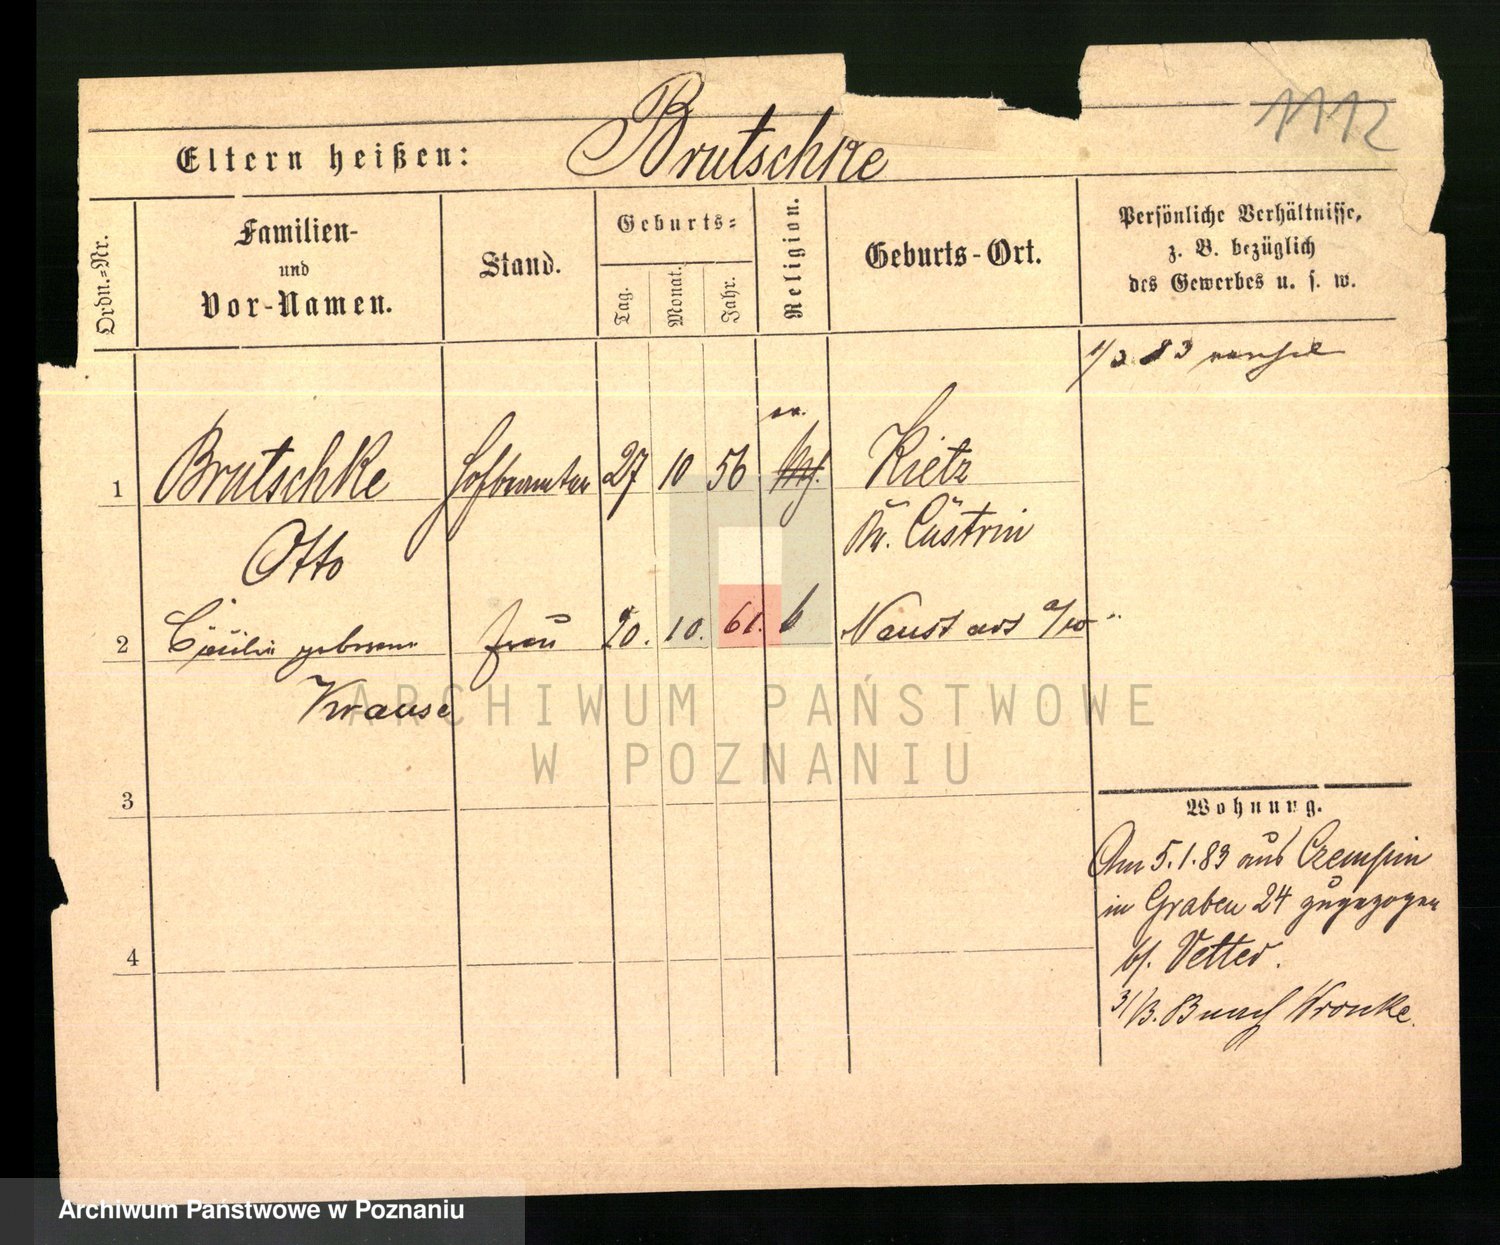 1112
Eltern heißen: Brutschke
Ordn.-Nr.
Familien-
und
Vor-Namen.
Stand.
Geburts-
Tag.
Monat.
Jahr.
Religion.
Geburts-Ort.
Persönliche Verhältnisse,
z. B. bezüglich
des Gewerbes u. s. w.
83
ev.
1 Brutschke 27 10 56 Kietz
Otto Kr. Cüstrin
2 Cäcilie geborene Frau 20. 10. 61.
Krause
ARCHIWUM PAŃSTWOWE
W POZNANIU
3
Wohnung.
Am 5.1.83 aus Czempin
in Graben 24 zugezogen
4
b/. Vetter.
nach Wronke.
Archiwum Państwowe w Poznaniu